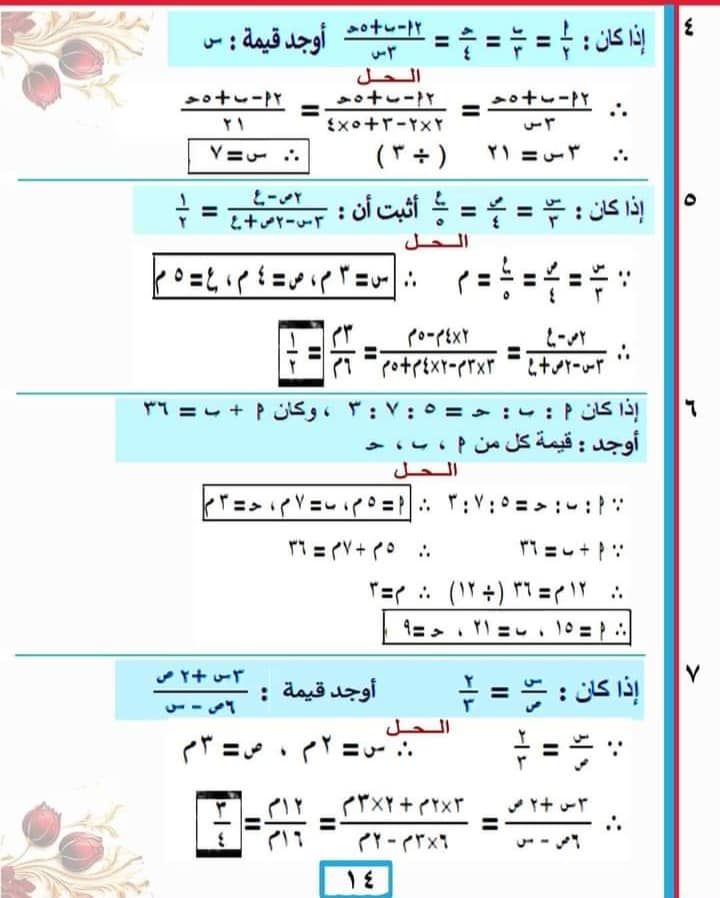 ٤ إذا كان : ٢/٢ = ب/٣ = حـ/٤ = (٢٢ − ب + ٥حـ)/٣س أوجد قيمة : س
الـحـل
∴ (٢٢ − ب + ٥حـ)/٣س = (٢٢ − ب + ٥حـ)/(٢×٢ − ٣ + ٥×٤) = (٢٢ − ب + ٥حـ)/٢١
∴ ٣س = ٢١ (÷ ٣) ∴ س = ٧
٥ إذا كان : س/٣ = ص/٤ = ع/٥ أثبت أن : (٢ص − ع)/(٣س − ٢ص + ع) = ١/٢
الـحـل
∵ س/٣ = ص/٤ = ع/٥ = م ∴ س = ٣م ، ص = ٤م ، ع = ٥م
∴ (٢ص − ع)/(٣س − ٢ص + ع) = (٢×٤م − ٥م)/(٣×٣م − ٢×٤م + ٥م) = ٣م/٦م = ١/٢
٦ إذا كان ٢ : ب : حـ = ٥ : ٧ : ٣ ، وكان ٢ + ب = ٣٦
أوجد : قيمة كل من ٢ ، ب ، حـ
الـحـل
∵ ٢ : ب : حـ = ٥ : ٧ : ٣ ∴ ٢ = ٥م ، ب = ٧م ، حـ = ٣م
∵ ٢ + ب = ٣٦ ∴ ٥م + ٧م = ٣٦
∴ ١٢م = ٣٦ (÷ ١٢) ∴ م = ٣
∴ ٢ = ١٥ ، ب = ٢١ ، حـ = ٩
٧ إذا كان : س/ص = ٢/٣ أوجد قيمة : (٣س + ٢ص)/(٦ص − س)
الـحـل
∵ س/ص = ٢/٣ ∴ س = ٢م ، ص = ٣م
∴ (٣س + ٢ص)/(٦ص − س) = (٣×٢م + ٢×٣م)/(٦×٣م − ٢م) = ١٢م/١٦م = ٣/٤
١٤